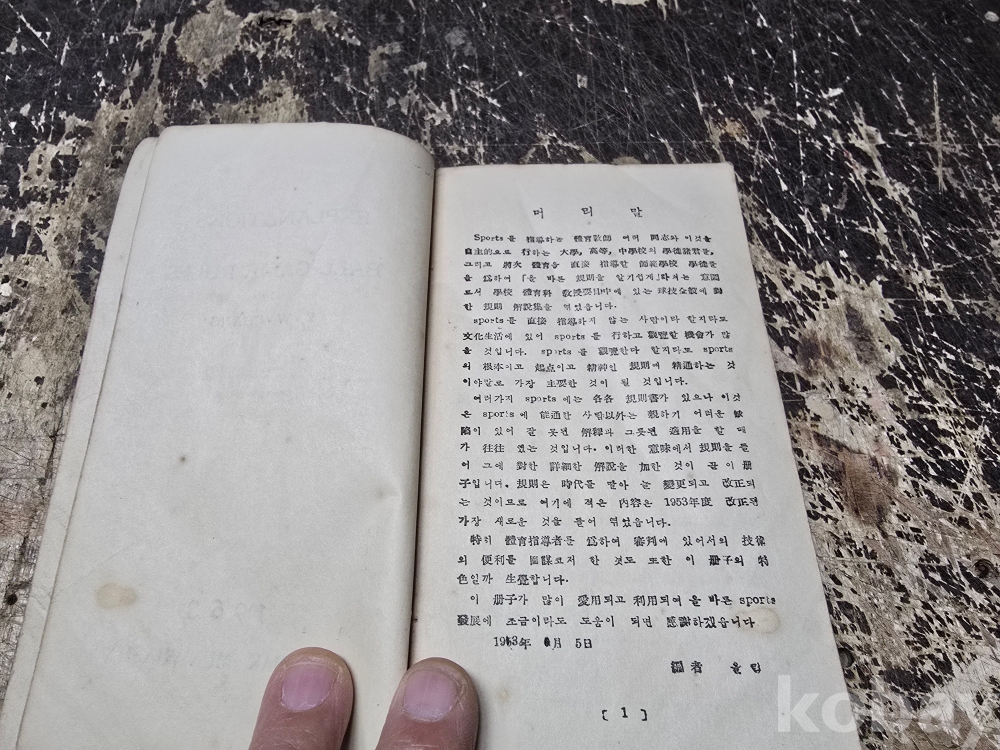 머 리 말
Sports를 指導하는 體育敎師 여러 同志와 이것을
自主的으로 行하는 大學, 高等, 中學校의 學徒諸君들,
그리고 將次 體育을 直接 指導할 師範學校 學徒들
을 爲하여 「올바른 規則을 알기쉽게」라는 意圖
로서 學校 體育科 敎授要目中에 있는 球技全般에 對
한 規則 解說集을 엮었읍니다.
sports를 直接 指導하지 않는 사람이라 할지라도
文化生活에 있어 sports를 行하고 觀覽할 機會가 많
을 것입니다. sports를 觀覽한다 할지라도 sports
의 根本이고 起点이고 精神인 規則에 精通하는 것
이야말로 가장 主要한 것이 될 것입니다.
여러가지 sports에는 各各 規則書가 있으나 이것
은 sports에 能通한 사람以外는 親하기 어려운 缺
陷이 있어 잘 못된 解釋과 그릇된 適用을 할 때
가 往往 있는 것입니다. 이러한 意味에서 規則을 들
어 그에 對한 詳細한 解說을 加한 것이 곧 이 册
子입니다. 規則은 時代를 따라 늘 變更되고 改正되
는 것이므로 여기에 적은 內容은 1953年度 改正된
가장 새로운 것을 들어 엮었읍니다.
特히 體育指導者를 爲하여 審判에 있어서의 技術
의 便利를 圖謀코저 한 것도 또한 이 册子의 特
色일까 生覺합니다.
이 册子가 많이 愛用되고 利用되여 올바른 sports
發展에 조금이라도 도움이 되면 感謝하겠읍니다
年 月 5日
編者
[ 1 ]
kobay